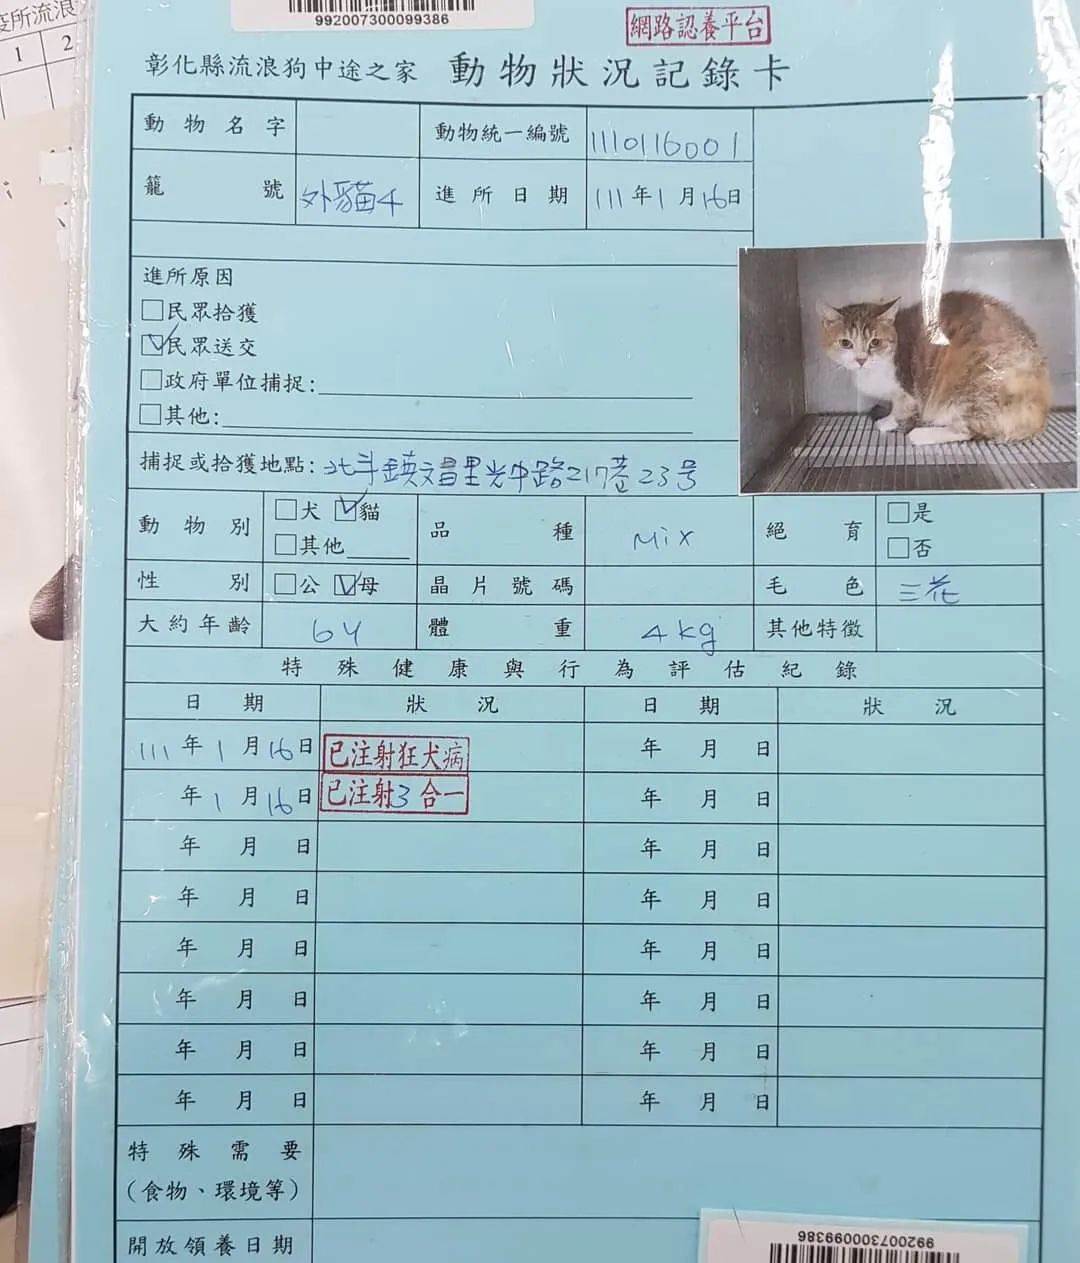 疫所流浪
1 2
992007300099386
網路認養平台
彰化縣流浪狗中途之家 動物狀況記錄卡
動物名字 動物統一編號 1110116001
籠號 外貓4 進所日期 111年1月16日
進所原因
□民眾拾獲
☑民眾送交
□政府單位捕捉:
□其他:
捕捉或拾獲地點:北斗鎮文昌里光中路217巷23號
動物別 □犬 ☑貓 品種 Mix 絕育 □是
□其他 □否
性別 □公 ☑母 晶片號碼 毛色 三花
大約年齡 6Y 體重 4kg 其他特徵
特殊健康與行為評估紀錄
日期 狀況 日期 狀況
111年1月16日 已注射狂犬病 年月日
年1月16日 已注射3合一 年月日
年月日 年月日
年月日 年月日
年月日 年月日
年月日 年月日
年月日 年月日
年月日 年月日
特殊需要
(食物、環境等)
開放領養日期
992007300099386